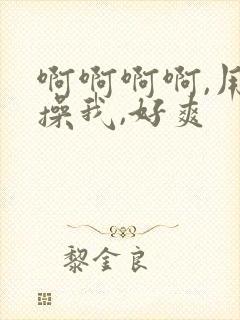 啊啊啊啊,用
操我,好爽
黎金良